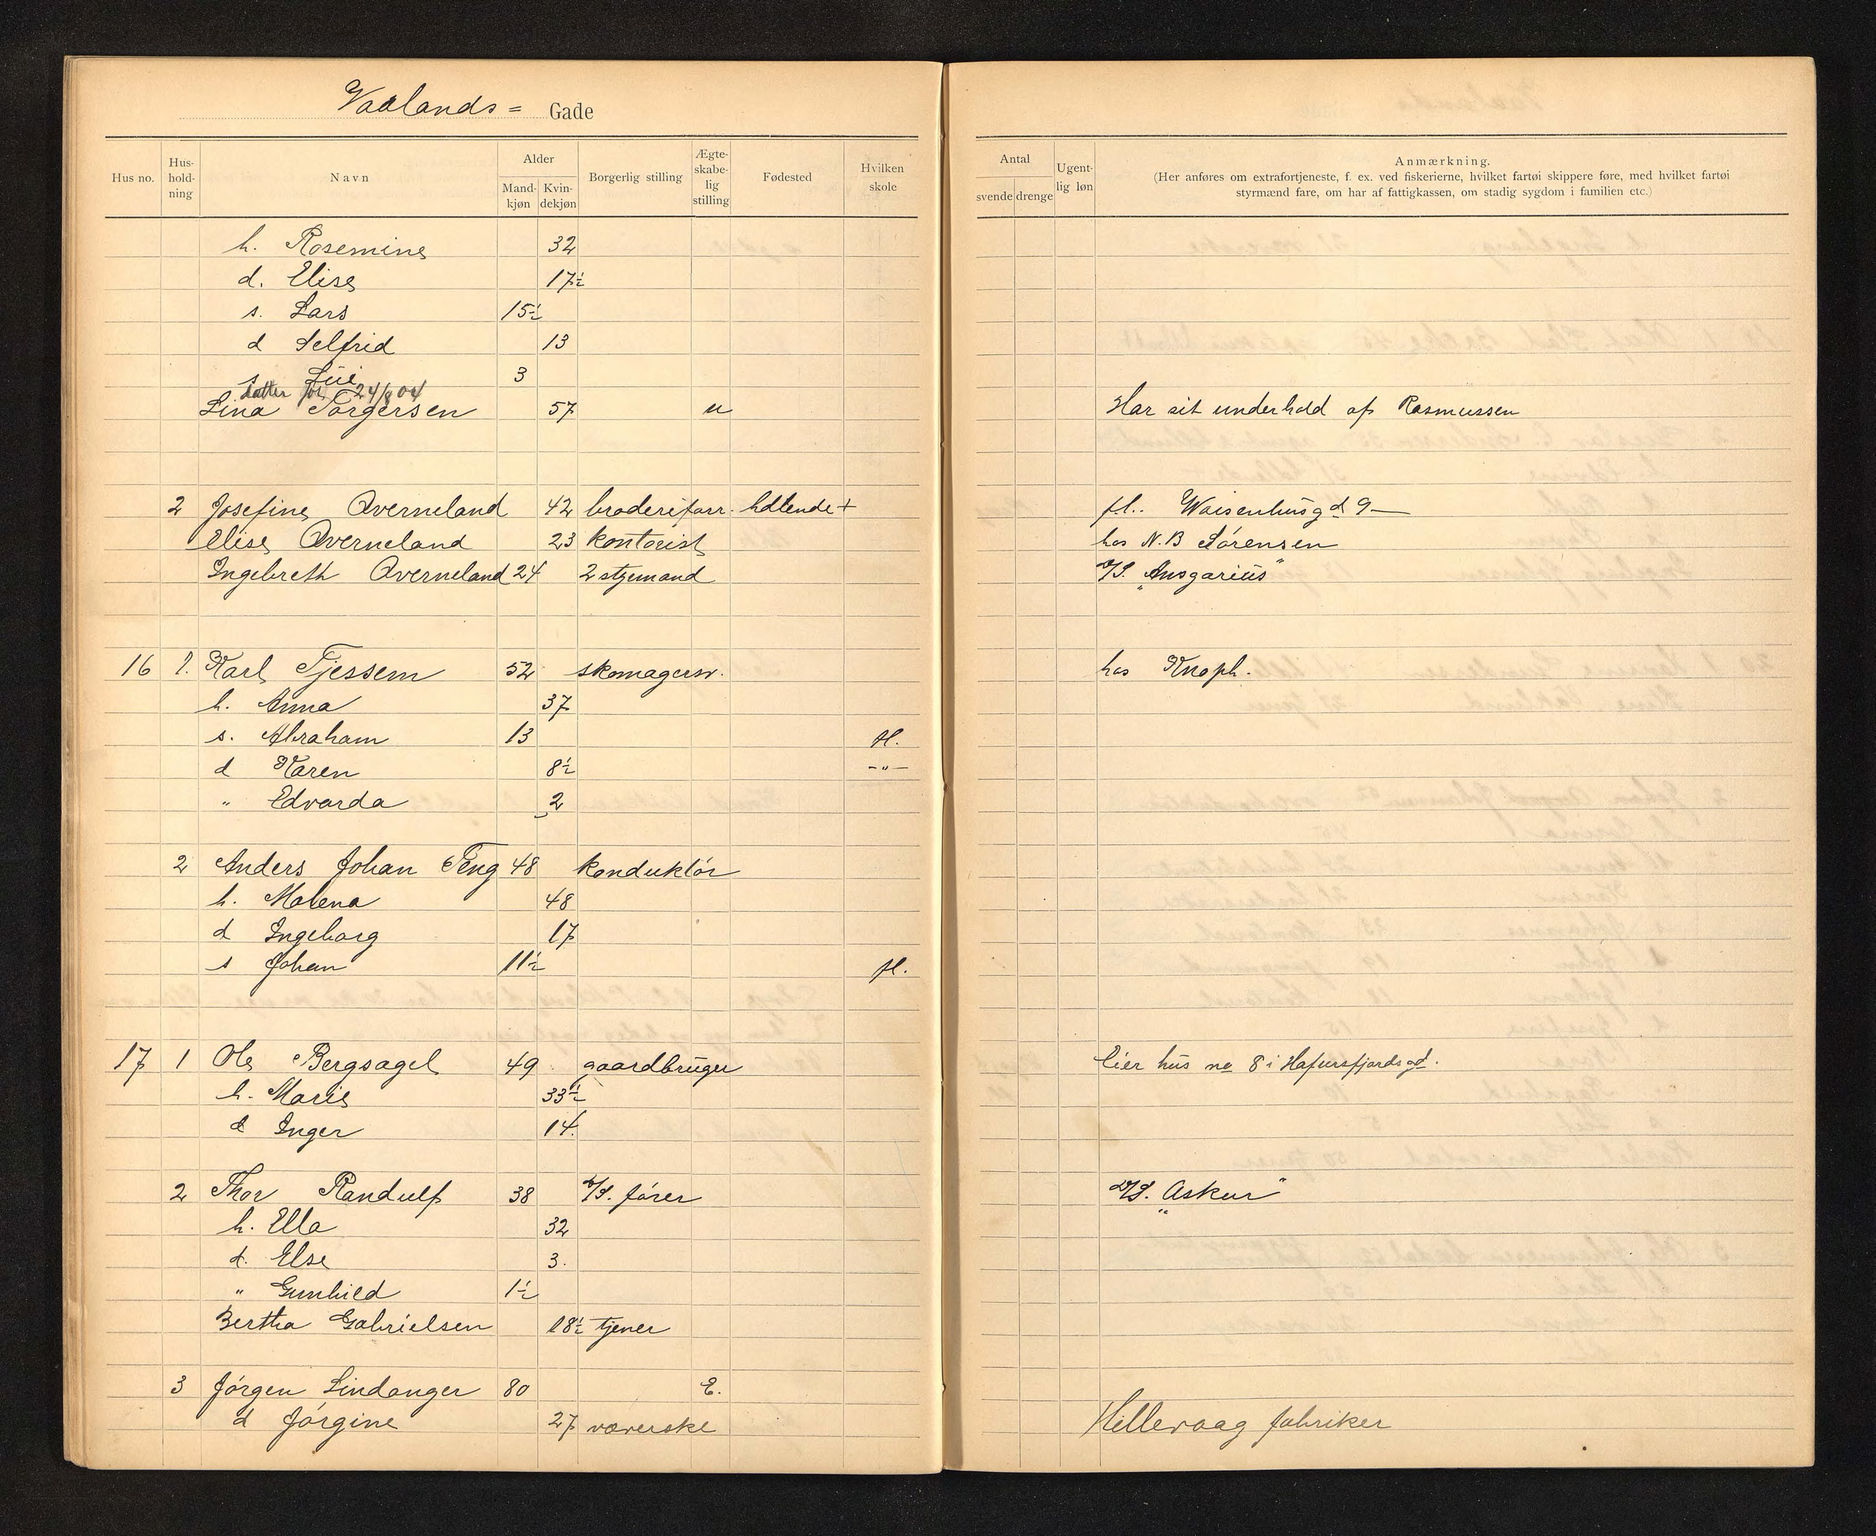 Vaalands= Gade
Hus no. Hus-holdning Navn Alder Mandkjøn Kvindekjøn Borgerlig stilling Ægteskabelig stilling Fødested Hvilken skole
Antal svende drenge Ugentlig løn Anmærkning.
(Her anføres om extrafortjeneste, f. ex. ved fiskerierne, hvilket fartøi skippere føre, med hvilket fartøi
styrmænd fare, om har af fattigkassen, om stadig sygdom i familien etc.)
h. Rosemine 32
d. Elise 17½
s. Lars 15½
d Selfrid 13
s. 3
datter 24/8 04
Lina Torgersen 57 u Har sit underhold af Rasmussen
2 Josefine Overneland 42 broderiforr. fl.. Waisenhusgd 9—
Elise Overneland 23 kontorist hos N.B Sørensen
Ingebreth Overneland 24 2 stymand D/S. „Ansgarius"
16 1. Karl Tjessem 52 skomagersv. hos Knoph.
h. Anna 37
s. Abraham 13 H.
d Karen 8½ -"-
" Edvarda 2
2 Anders Johan Teng 48 konduktör
h. Malena 48
d Ingeborg 17
s Johan 11½ H.
17 1 Ole Bergsagel 49 gaardbruger Eier hus no 8 i Hafursfjordsgd.
h. Marie 33½
d Inger 14.
2 Thor Randulf 38 D/S. fører D/S. „Askur"
h. Ella 32
d. Else 3.
" Gunhild 1½
Bertha Gabrielsen 18½ tjener
3 Jörgen Lindanger 80 E.
d Jörgine 27 væverske Hillevaag fabriker